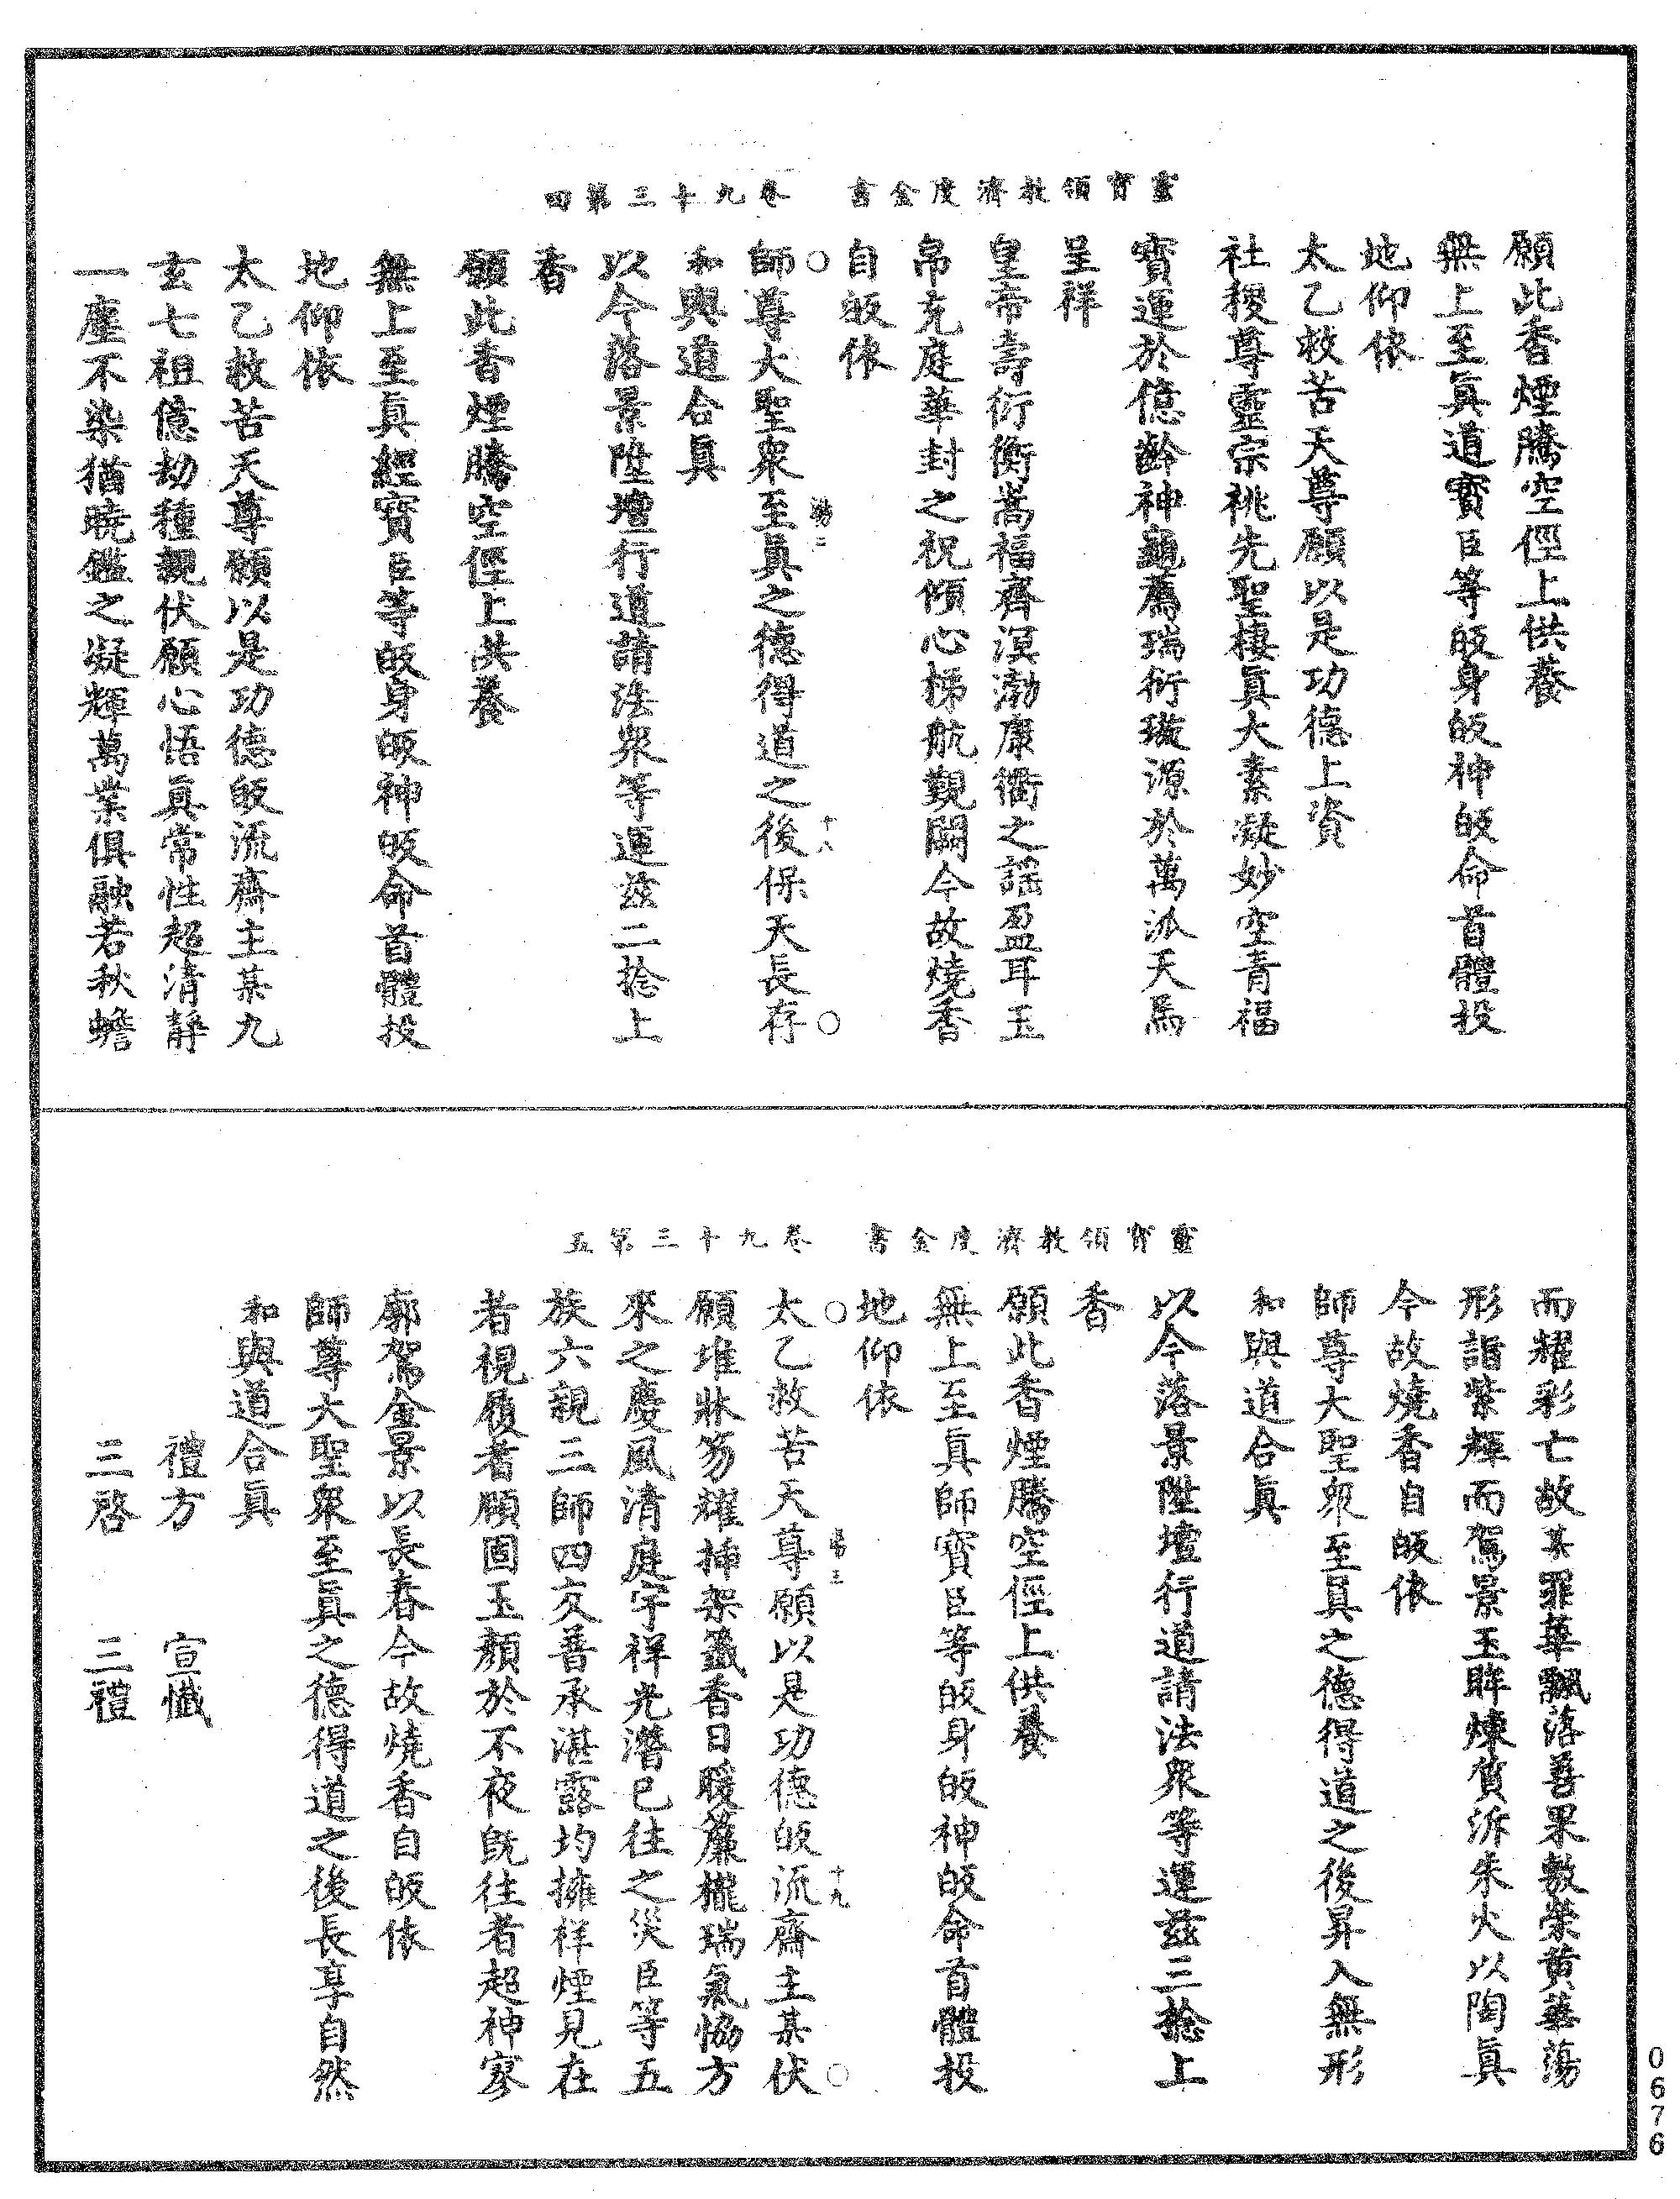 靈寶領教濟度金書　卷九十三第四
願此香煙騰空徑上供養
無上至眞道寶臣等皈身皈神皈命首體投
地仰依
太乙救苦天尊願以是功德上資
社稷尊靈宗祧先聖棲眞大素凝妙空青福
寶運於億齡神龜薦瑞衍璇源於萬派天馬
呈祥
皇帝壽衍衡嵩福齊溟渤康衢之謡盈耳玉
帛充庭華封之祝傾心梯航覲闕今故燒香
自皈依
師尊大聖衆至眞之德得道之後保天長存
湯二
十八
和與道合眞
以今落景陞壇行道請法衆等運兹二捻上
香
願此香煙騰空徑上供養
無上至眞經寶臣等皈身皈神皈命首體投
地仰依
太乙救苦天尊願以是功德皈流齋主某九
玄七祖億劫種親伏願心悟眞常性超清靜
一塵不染猶曉鑑之凝輝萬業俱融若秋蟾
靈寶領教濟度金書　卷九十三第五
而耀彩亡故某罪華飄落善果敷榮黄華蕩
形詣紫輝而駕景玉眸煉質泝朱火以陶眞
今故燒香自皈依
師尊大聖衆至眞之德得道之後昇入無形
和與道合眞
以今落景陞壇行道請法衆等運兹三捻上
香
願此香煙騰空徑上供養
無上至眞師寶臣等皈身皈神皈命首體投
地仰依
太乙救苦天尊願以是功德皈流齋主某伏
湯三
十九
願堆牀笏耀揷架籤香日暖簾櫳瑞氣恊方
來之慶風清庭宇祥光潛已往之災臣等五
族六親三師四友普承湛露均擁祥煙見在
者視履者願固玉顏於不夜旣往者超神寥
廓駕金景以長春今故燒香自皈依
師尊大聖衆至眞之德得道之後長享自然
和與道合眞
禮方　宣懺
三啓　三禮
0676